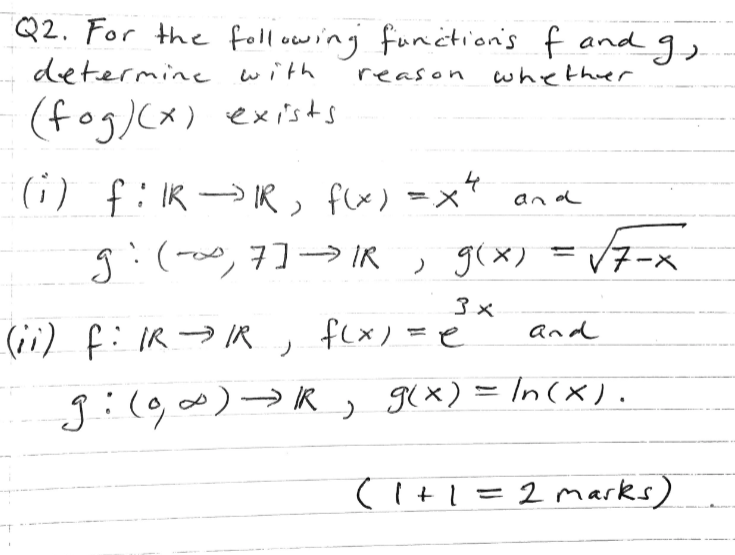 Q2. For the following functions f and g,
determine with reason whether
(fog)(x) exists
(i) f: ℝ → ℝ, f(x) = x⁴ and
g: (-∞, 7] → ℝ, g(x) = √(7-x)
(ii) f: ℝ → ℝ, f(x) = e³ˣ and
g: (0, ∞) → ℝ, g(x) = ln(x).
(1 + 1 = 2 marks)